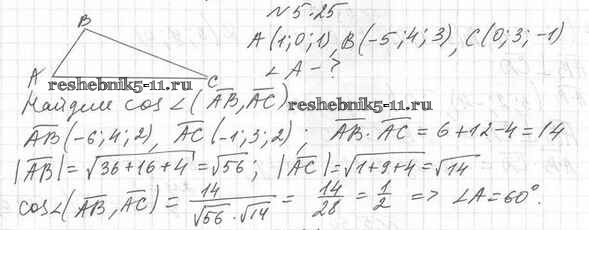 №5.25
B
A(1;0;1), B(-5;4;3), C(0;3;-1)
∠A-?
A
C
reshebnik5-11.ru
Найдем cos∠(AB, AC) reshebnik5-11.ru
AB(-6;4;2), AC(-1;3;2); AB·AC=6+12-4=14
|AB|=√36+16+4=√56; |AC|=√1+9+4=√14
cos∠(AB, AC)=14/√56·√14=14/28=1/2 => ∠A=60°.